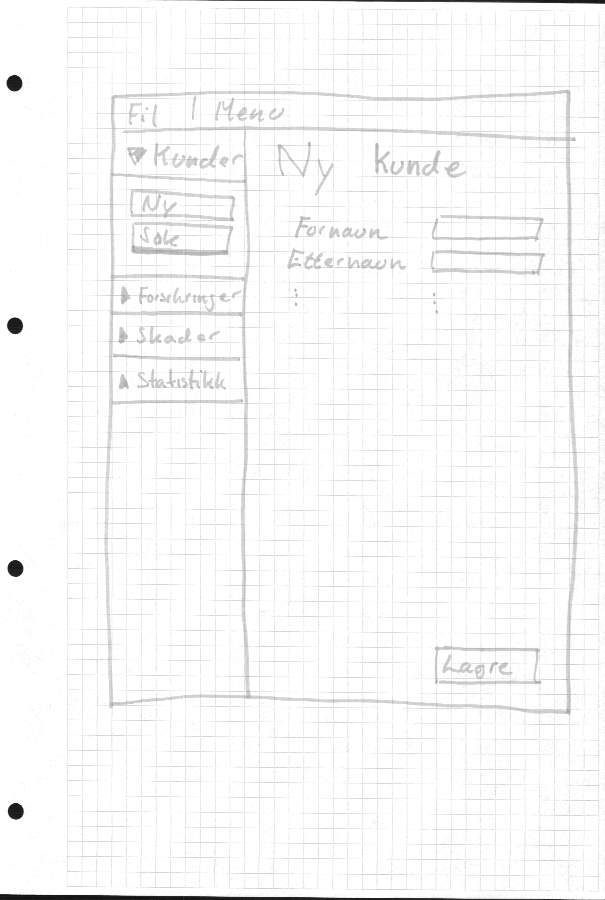 Fil | Menu
Kunder
Ny
Søk
Forsikringer
Skader
Statistikk
Ny Kunde
Fornavn
Etternavn
Lagre